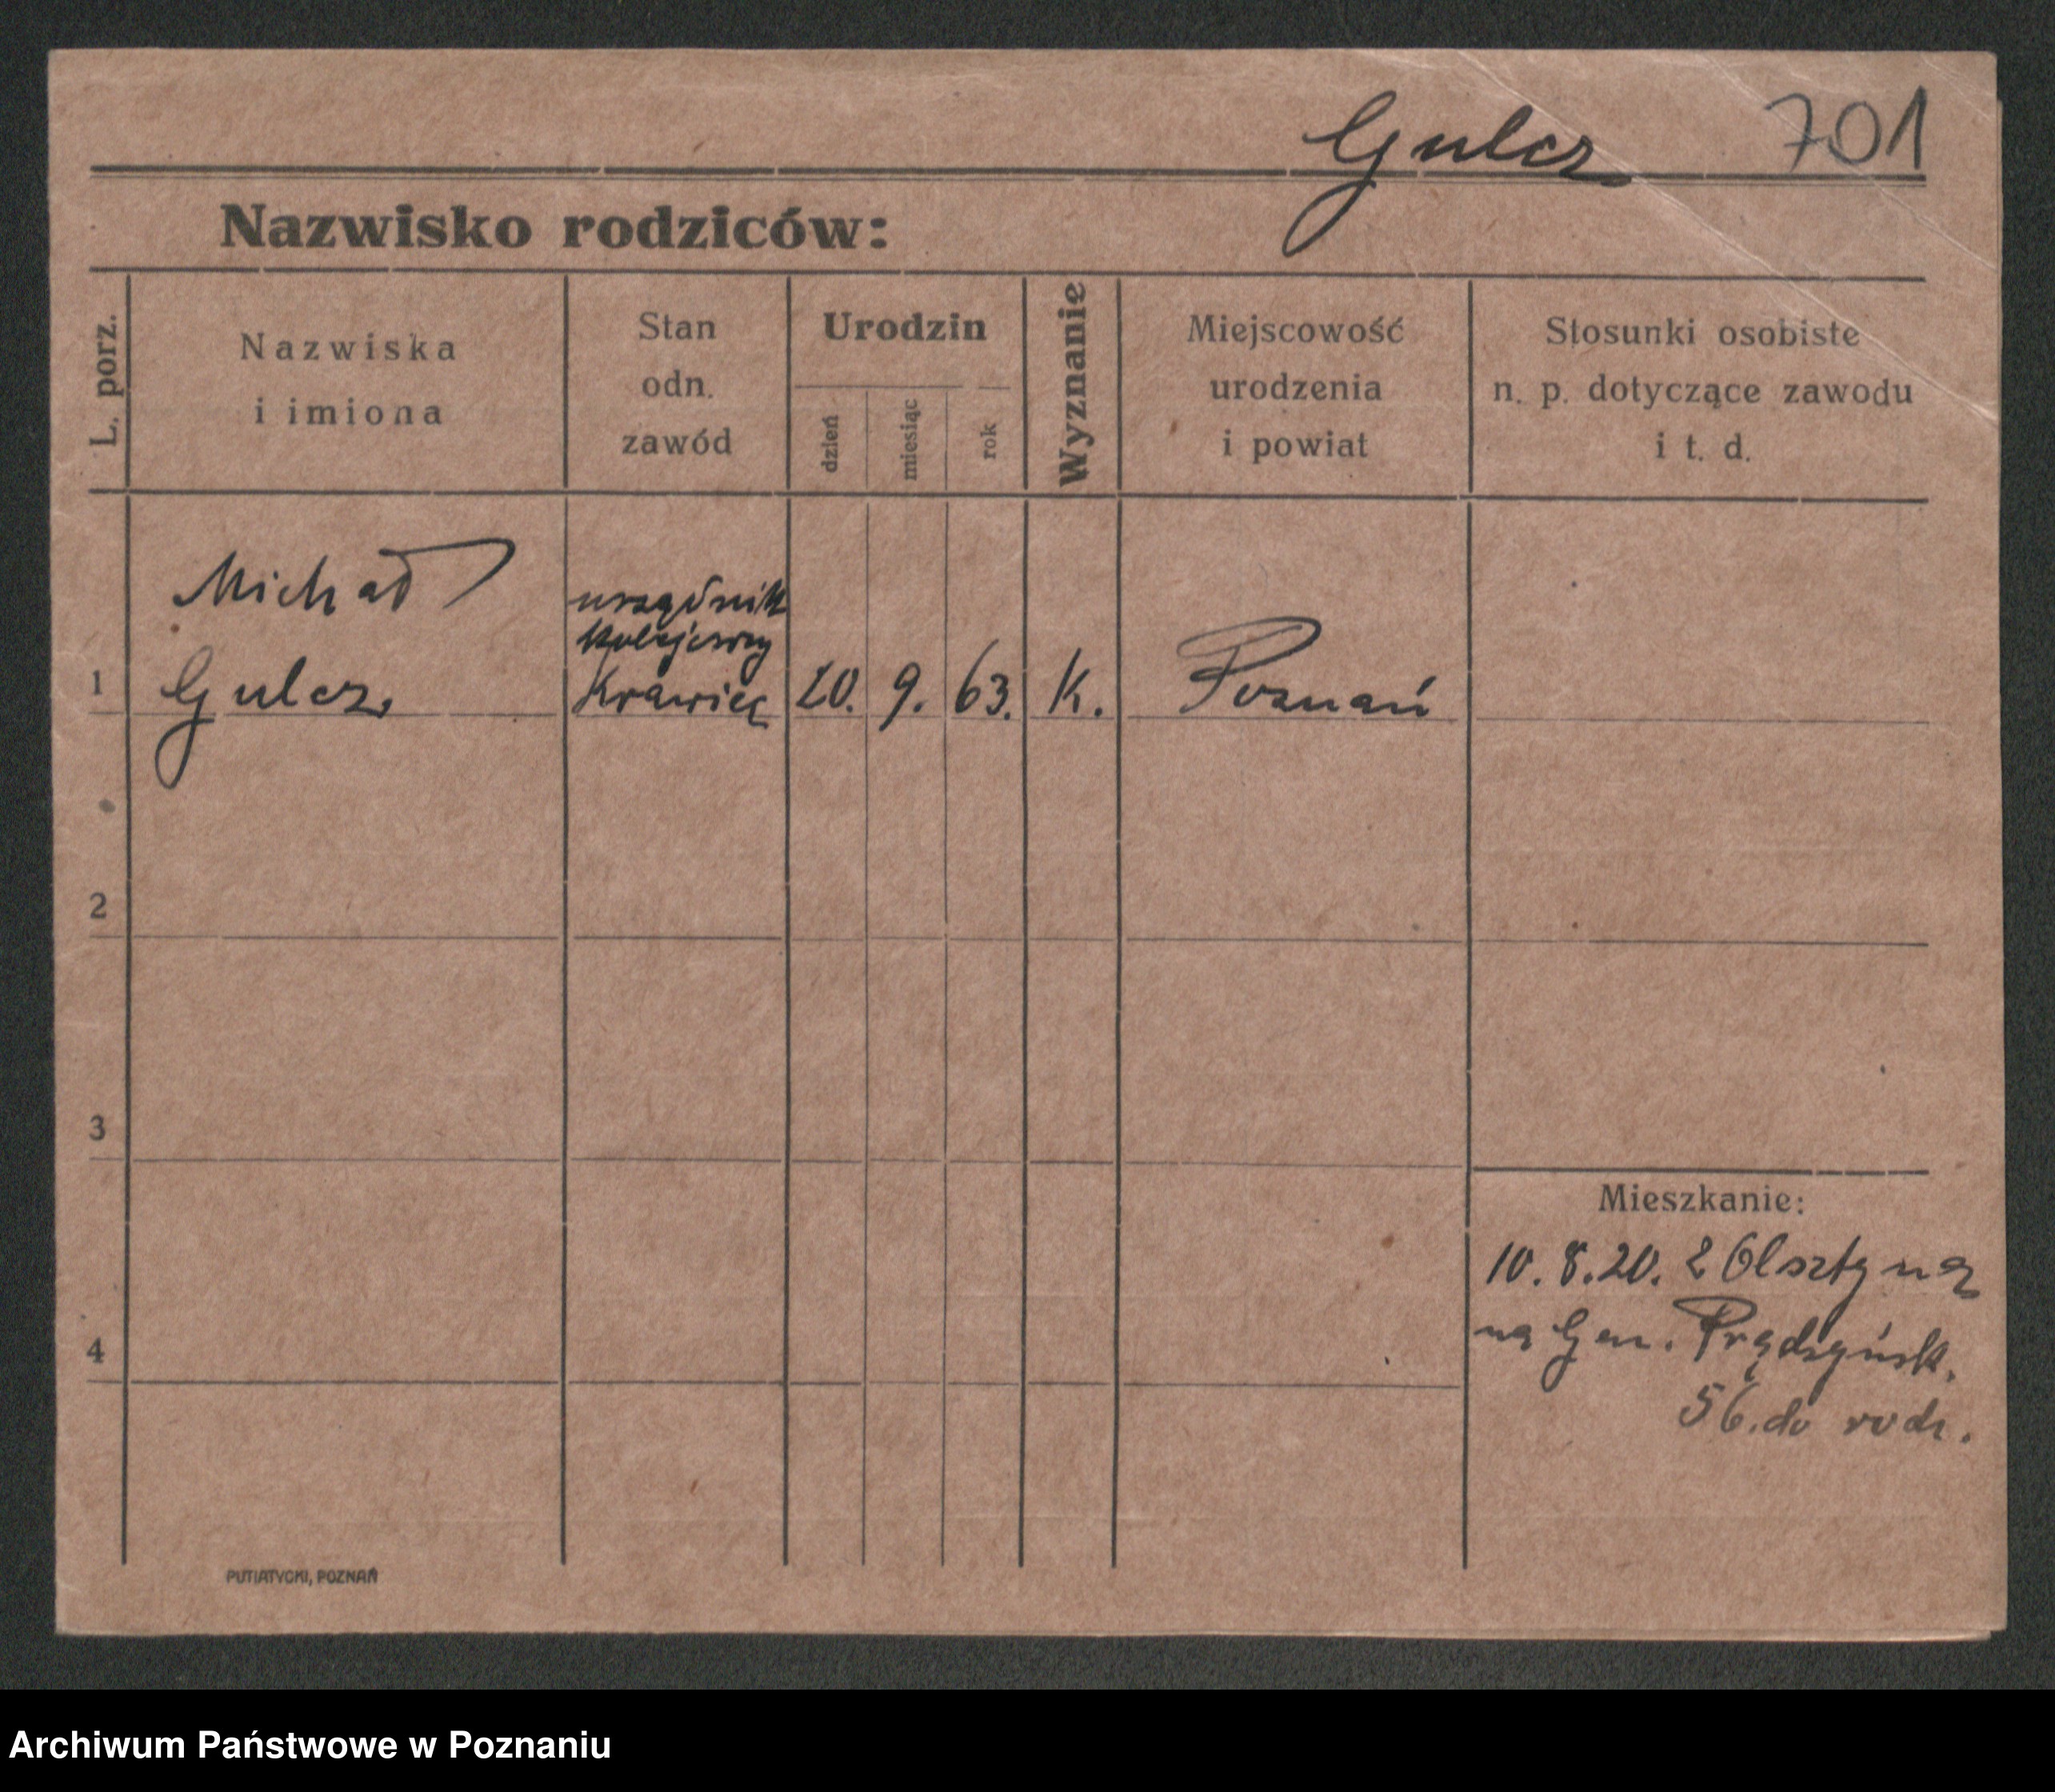 Gulcz 701
Nazwisko rodziców:
L. porz.
Nazwiska
i imiona
Stan
odn.
zawód
Urodzin
dzień
miesiąc
rok
Wyznanie
Miejscowość
urodzenia
i powiat
Stosunki osobiste
n. p. dotyczące zawodu
i t. d.
Michał
urzędnik
kolejowy
1 Gulcz, Krawiec 20. 9. 63. K. Poznań
2
3
4
Mieszkanie:
10.8.20. z Olsztyna
na Gen. Prądzyńsk.
56. do rodz.
PUTIATYCKI, POZNAŃ
Archiwum Państwowe w Poznaniu